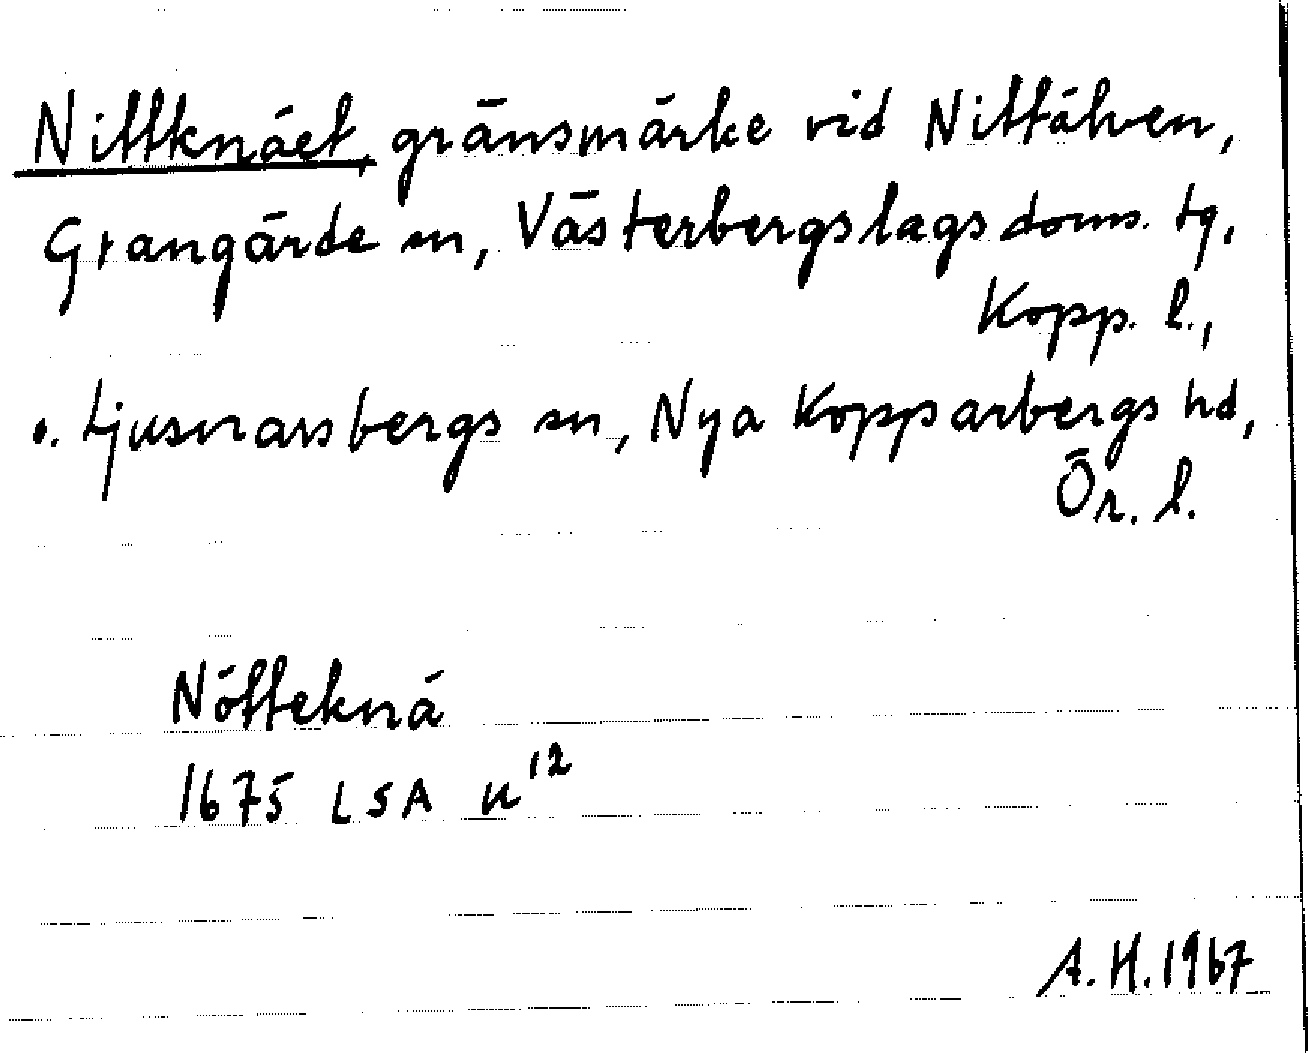 Nittknäet, gränsmärke vid Nittälven,
Grangärde sn, Västerbergslags doms. tg,
Kopp. l.,
o. Ljusnarsbergs sn, Nya Kopparbergs hd,
Ör. l.
Nötteknä
1675 LSA u¹²
A.H. 1967